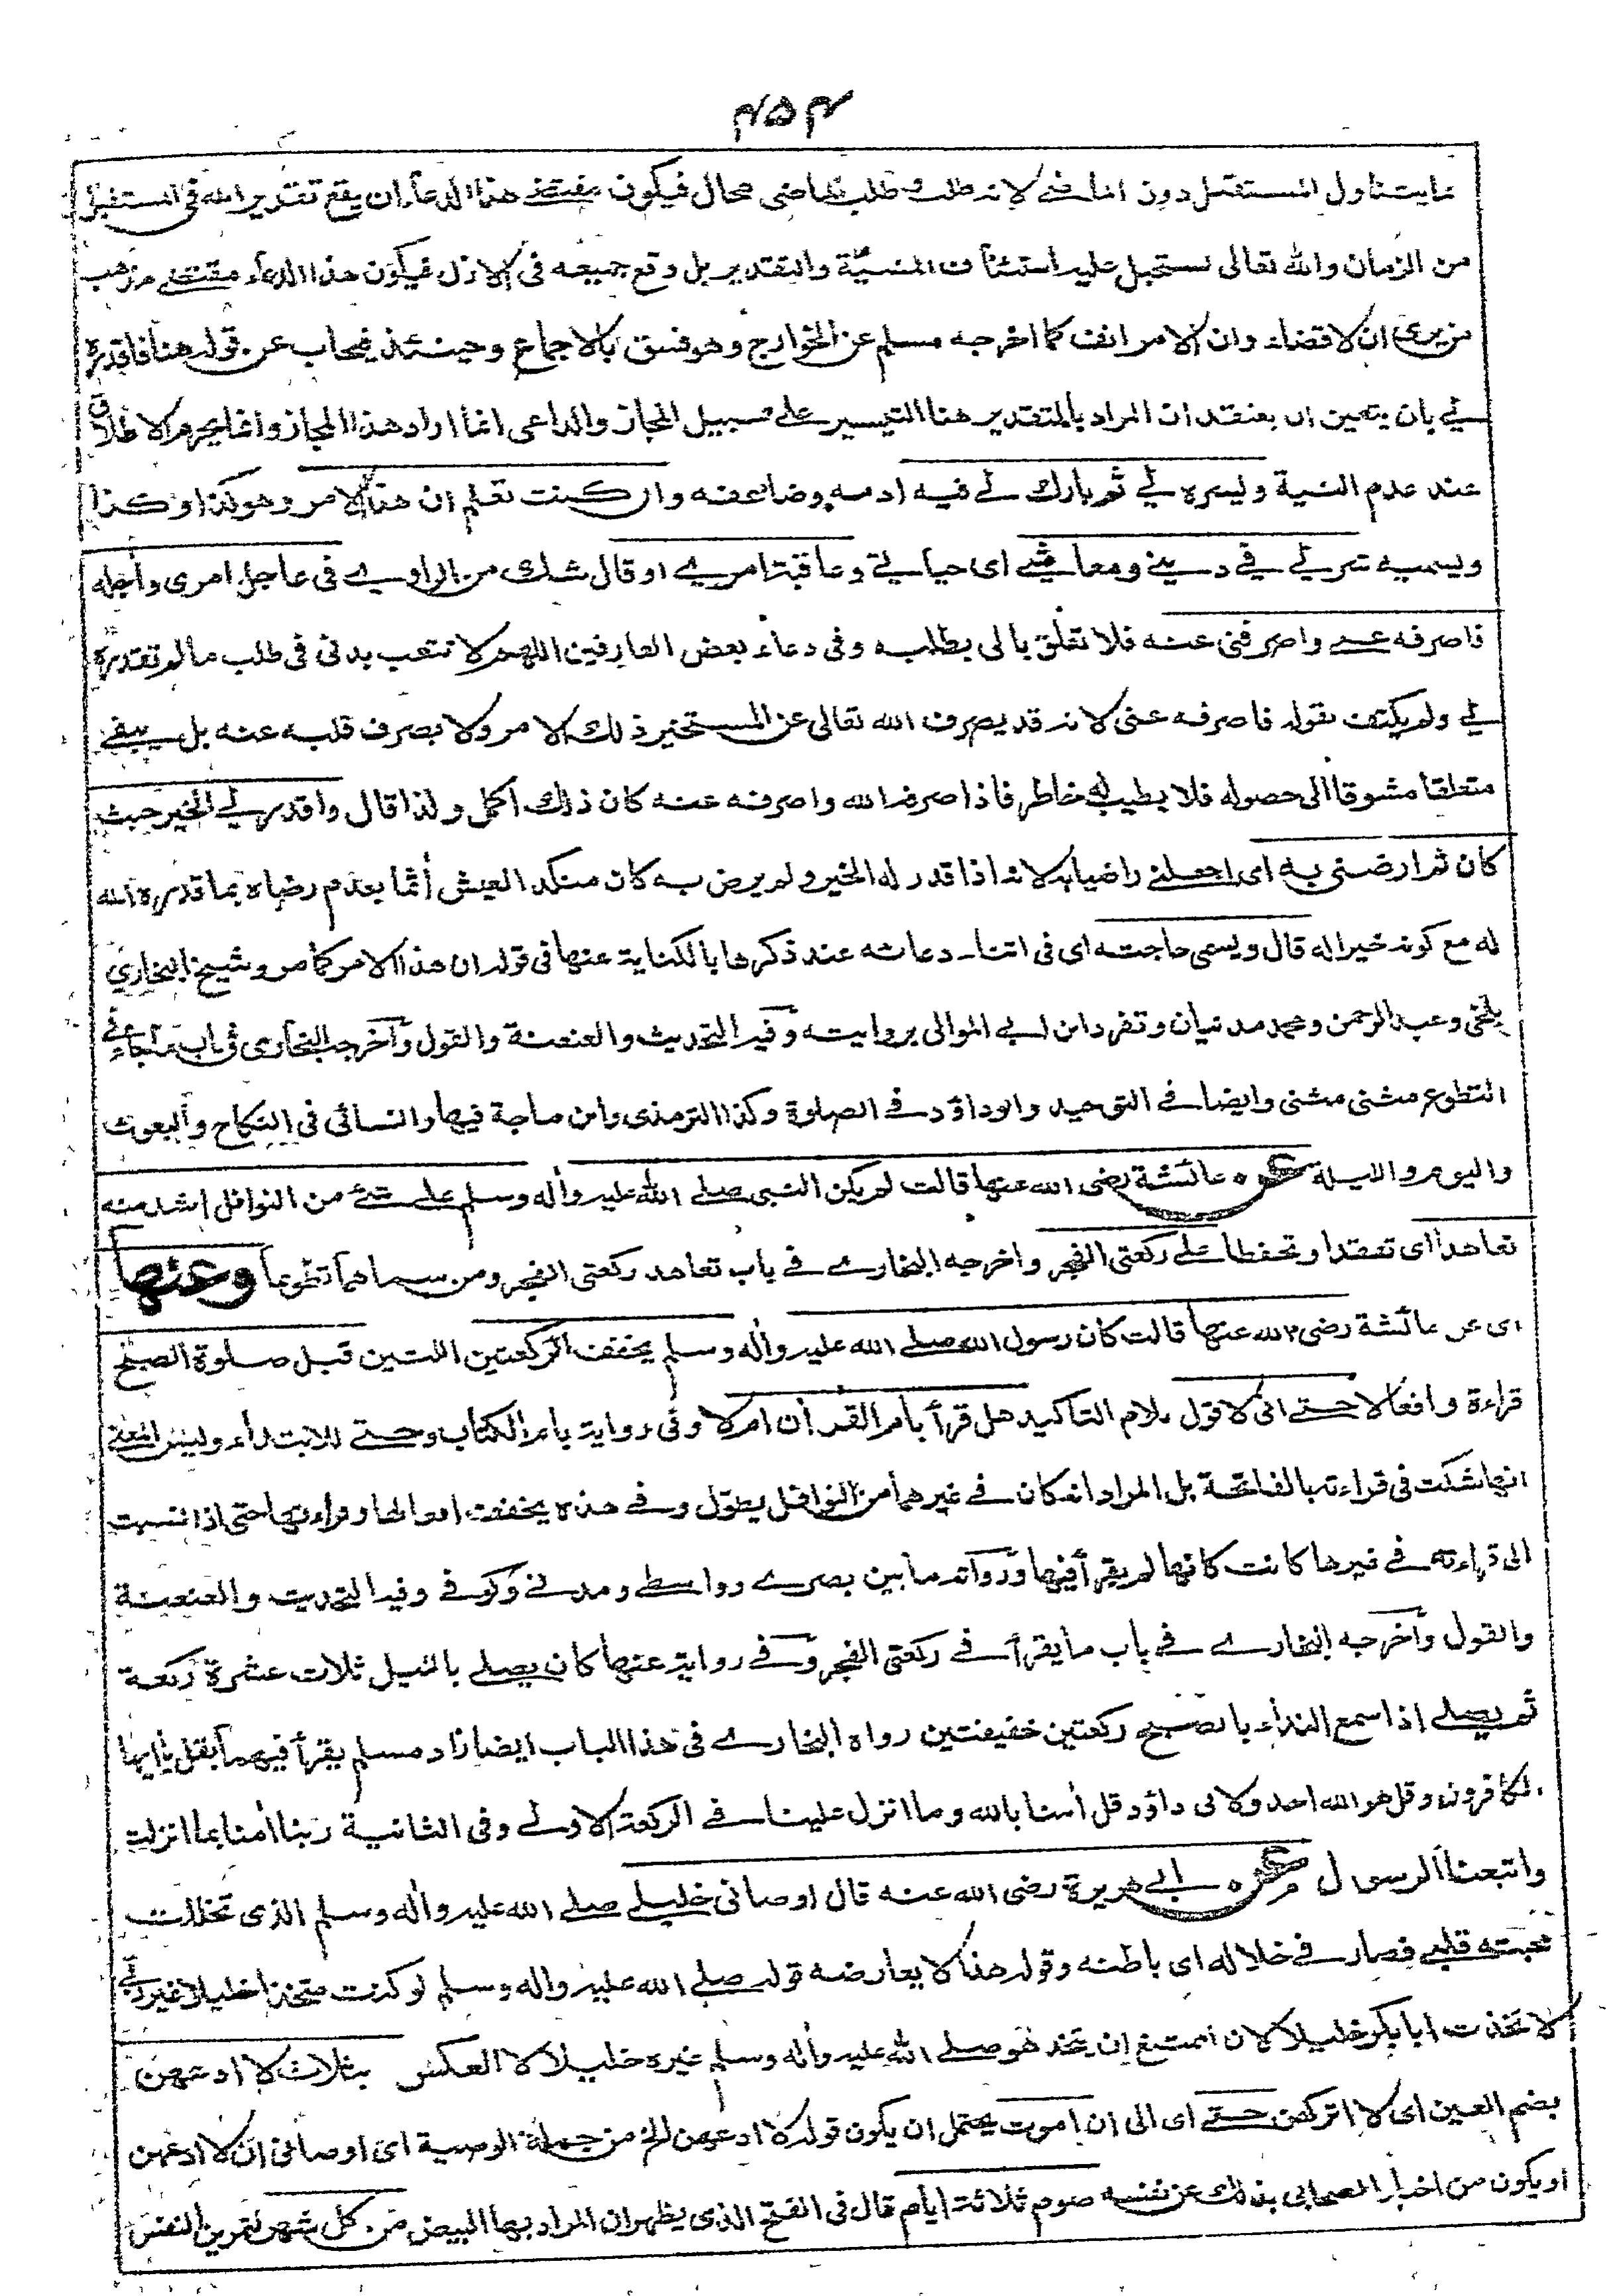 ٤٥٤
انما يتناول المستقبل دون الماضى لانه طلب وطلب الماضى محال فيكون مقتضى هذا الدعاء ان يقع تقدير الله فى المستقبل
من الزمان والله تعالى يستحيل عليه استئناف المشيّة والتقدير بل وقع جميعه فى الازل فيكون هذا الدعاء مقتضى مذهب
من يرى ان لا قضاء وان الامر انف كما اخرجه مسلم عن الخوارج وهو فسق بالاجماع وحينئذ فيجاب عن قوله هنا فاقدره
لي بان يتعين ان يعتقد ان المراد بالتقدير هنا التيسير على سبيل المجاز والداعى انما اراد هذا المجاز وانما يحرم الاطلاق
عند عدم النية ويسره لي ثم بارك لي فيه ادمه وضاعفه وان كنت تعلم ان هذا الامر وهو كذا وكذا
ويسميه شر لي في ديني ومعاشي اى حياتي وعاقبة امري او قال شك من الراوي فى عاجل امرى وآجله
فاصرفه عني واصرفنى عنه فلا تعلق بالى بطلبه وفى دعاء بعض العارفين اللهم لا تتعب بدنى فى طلب ما لم تقدره
لي ولم يكتف بقوله فاصرفه عنى لانه قد يصرف الله تعالى عن المستخير ذلك الامر ولا يصرف قلبه عنه بل يبقى
متعلقا مشوقا الى حصوله فلا يطيب له خاطر فاذا صرفه الله واصرفه عنه كان ذلك اكمل ولذا قال واقدر لي الخير حيث
كان ثم ارضنى به اى اجعلنى راضيا به لانه اذا قدر له الخير ولم يرض به كان منكد العيش أثما بعدم رضاه بما قدره الله
له مع كونه خيرا له قال ويسمى حاجته اى فى اثناء دعائه عند ذكرها بالكناية عنها فى قوله ان هذا الامر كما مر وشيخ البخاري
بلخى وعبد الرحمن ومحمد مدنيان وتفرد ابن ابي الموالى بروايته وفيه التحديث والعنعنة والقول وأخرجه البخارى فى باب ما جاء في
التطوع مثنى مثنى وايضا في التوحيد وابوداؤد في الصلوة وكذا الترمذى وابن ماجة فيها والنسائى فى النكاح والبعوث
واليوم والليلة عن عائشة رضى الله عنها قالت لم يكن النبى صلى الله عليه وأله وسلم على شئ من النوافل اشد منه
تعاهدا اى تفقدا وتحفظا على ركعتى الفجر واخرجه البخاري في باب تعاهد ركعتى الفجر ومن سماهما تطوعا وعنها
اى عن عائشة رضى الله عنها قالت كان رسول الله صلى الله عليه وأله وسلم يخفف الركعتين اللتين قبل صلوة الصبح
قراءة وافعالا حتى انى لاقول بلام التاكيد هل قرأ بام القرأن ام لا وفى رواية بام الكتاب وحتى للابتداء وليس المعنى
انها شكت فى قراءته بالفاتحة بل المراد انه كان في غيرهما من النوافل يطوّل وفي هذه يخفف افعالها وقراءتها حتى اذا نسبت
الى قراءته في غيرها كانت كانها لم يقرأ فيها ورواته ما بين بصري وواسطي ومدني وكوفي وفيه التحديث والعنعنة
والقول وأخرجه البخاري في باب ما يقرأ في ركعتى الفجر وفي رواية عنها كان يصلي بالليل ثلاث عشرة ركعة
ثم يصلي اذا سمع النداء بالصبح ركعتين خفيفتين رواه البخاري فى هذا الباب ايضا زاد مسلم يقرأ فيهما بقل يأيها
الكافرون وقل هو الله احد ولابى داؤد قل أمنا بالله وما انزل علينا في الركعة الاولى وفى الثانية ربنا أمنا بما انزلت
واتبعنا الرسول عن ابي هريرة رضى الله عنه قال اوصانى خليلي صلى الله عليه وأله وسلم الذى تخللت
محبته قلبي فصار في خلاله اى باطنه وقوله هذا لا يعارضه قوله صلى الله عليه واله وسلم لو كنت متخذا خليلا غير ربي
لاتخذت ابا بكر خليلا لان الممتنع ان يتخذ هو صلى الله عليه وأله وسلم غيره خليلا لا العكس بثلاث لا ادعهن
بضم العين اى لا اتركهن حتى اى الى ان اموت يحتمل ان يكون قوله لا ادعهن الخ من جملة الوصية اى اوصانى ان لا ادعهن
او يكون من اخبار الصحابى بذلك عن نفسه صوم ثلاثة ايام قال فى الفتح الذى يظهر ان المراد بها البيض من كل شهر لتمرين النفس